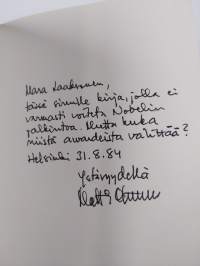 Mara Laaksonen,
tässä sinulle kirja, jolla ei
varmasti voiteta Nobelin
palkintoa. Mutta kuka
niistä awardeista välittää?
Helsinki 31.8.84
Ystävyydellä